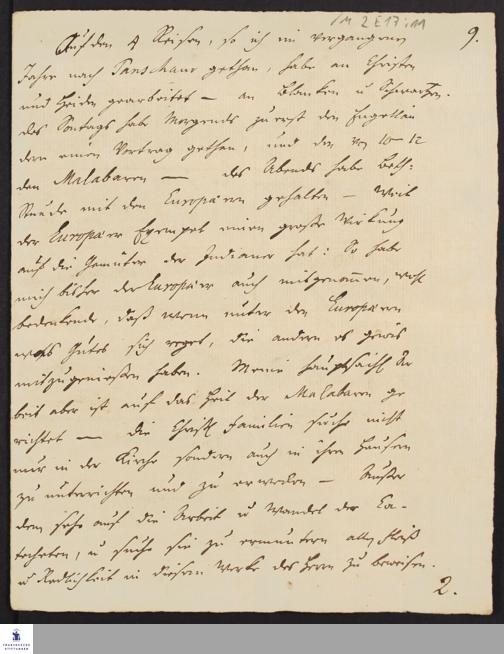 /M 2 E 17 : 11
9.
Auf den 4 Reisen, so ich im vergangenen
Jahre nach Tanschaur gethan, habe an Christen
und Heiden gearbeitet — an Blanken u Schwartzen.
des Sontags habe Morgends zuerst den Engellän
dern einen Vortrag gethan, und den von 10–12
den Malabaren — des Abends habe Beth-
Stunde mit den Europäern gehalten — Weil
der Europäer Exempel einen große Wirkung
auf die Gemüter der Indianer hat: So habe
mich bisher der Europäer auch mit angenommen, wohl
bedenkende, daß wenn unter den Europäern
was Gutes sich reget, die andern es gewis
mitzugenießen haben. Meine hauptsächl Ar
beit aber ist auf das Heil der Malabaren ge
richtet — die Christl Familien suche nicht
nur in der Kirche sondern auch in ihren Häusern
zu unterrichten und zu erwecken — Außer
dem sehe auf die Arbeit u Wandel der Ca-
techeten, u suche sie zu ermuntern allen Fleiß
u Redlichkeit in diesem Werke des Herrn zu beweisen.
2.
FRANCKESCHE
STIFTUNGEN